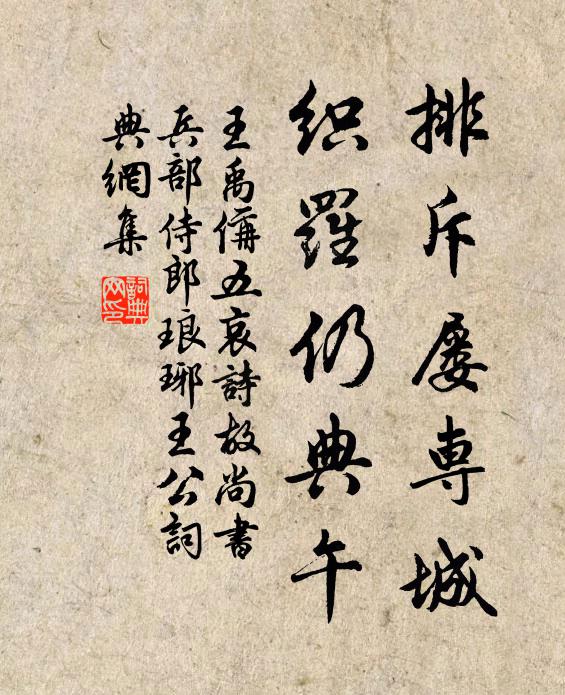 排斥屡專城
织羅仍典午
王禹偁五哀詩故尚書
兵部侍郎琅琊王公詞
典網集
詞典网印